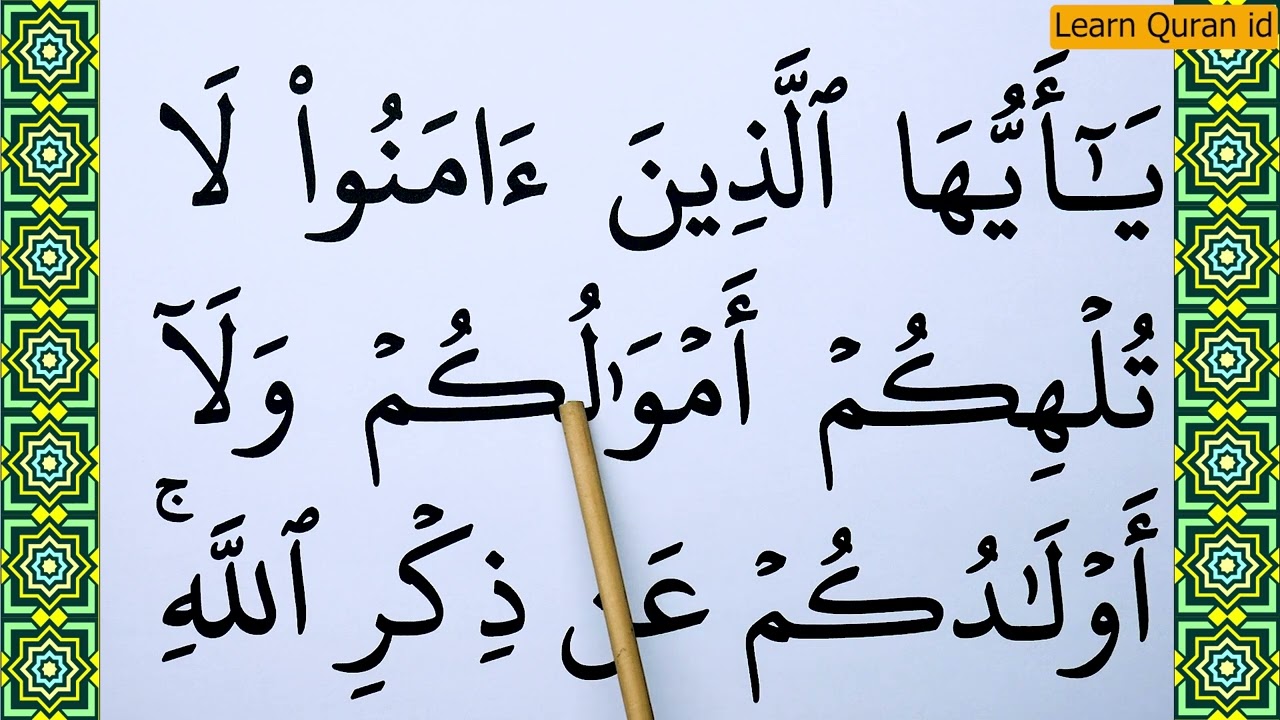 Learn Quran id
يَـٰٓأَيُّهَا ٱلَّذِينَ ءَامَنُوا۟ لَا
تُلْهِكُمْ أَمْوَٰلُكُمْ وَلَآ
أَوْلَـٰدُكُمْ عَن ذِكْرِ ٱللَّهِ ۚ